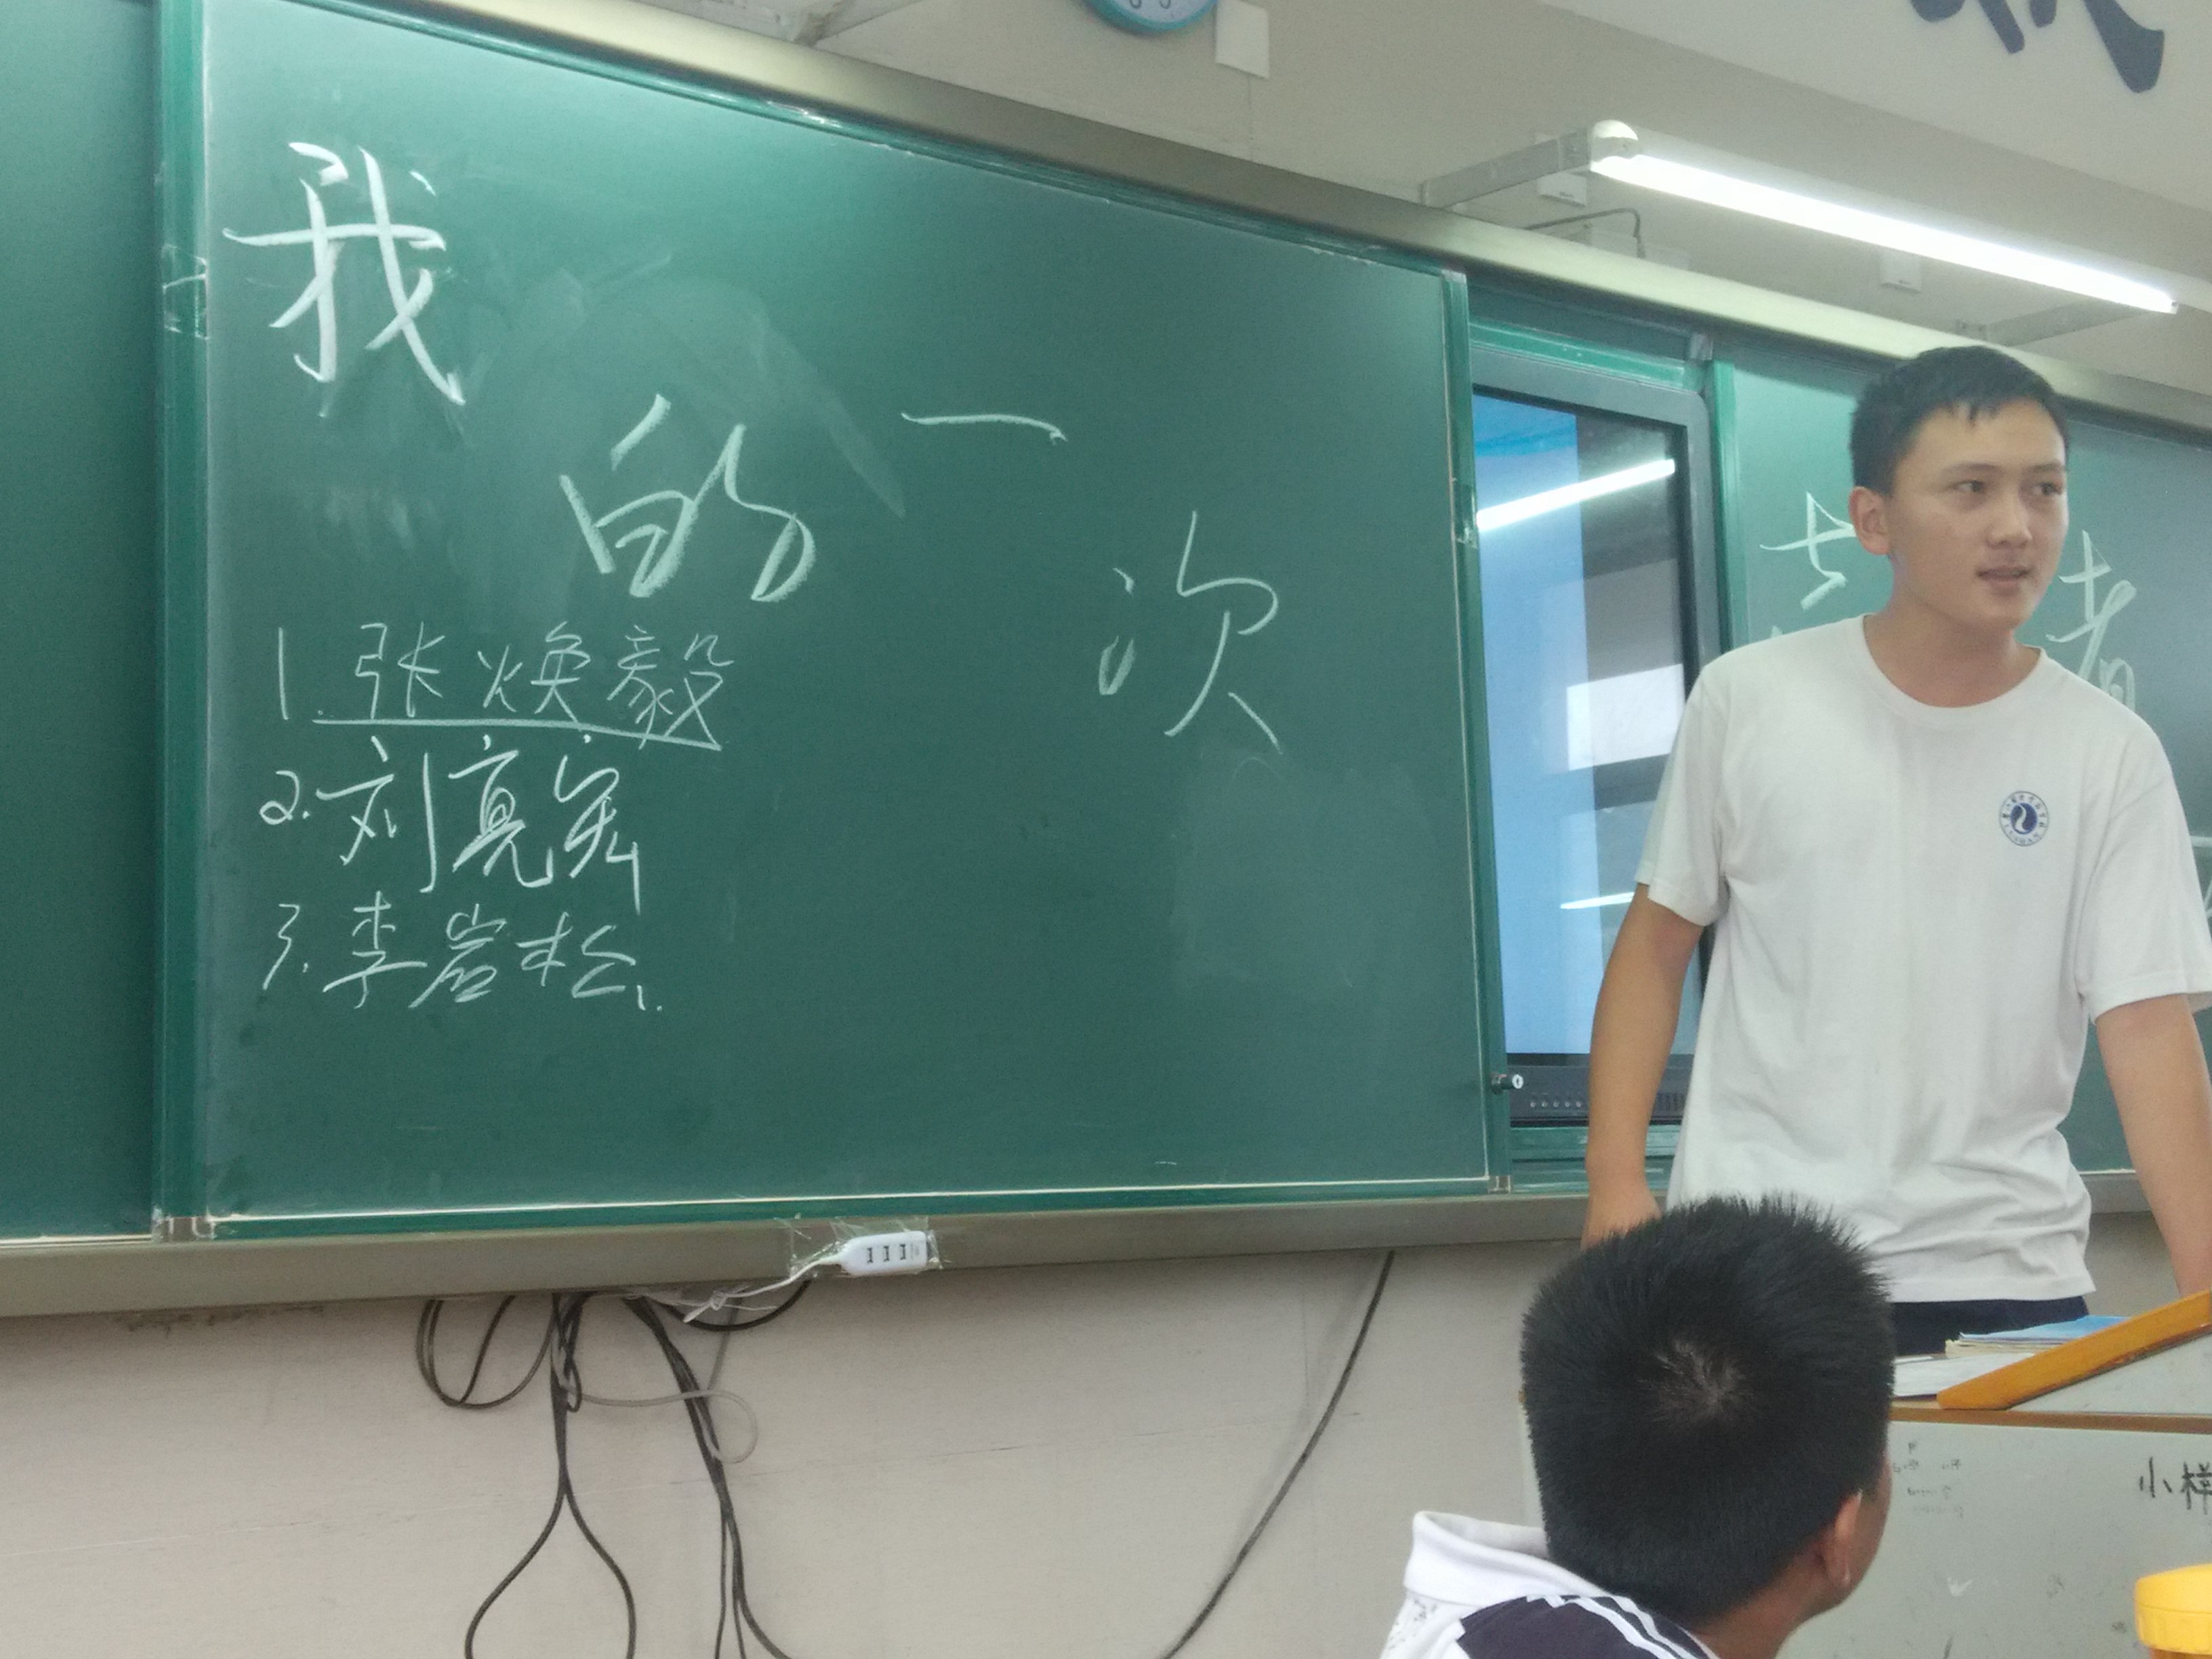 我的一次
1. 张焕毅
2. 刘亮
3. 李岩松
者
小样